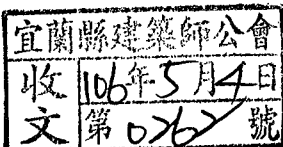 宜蘭縣建築師公會
收文
106年5月4日
第0262號